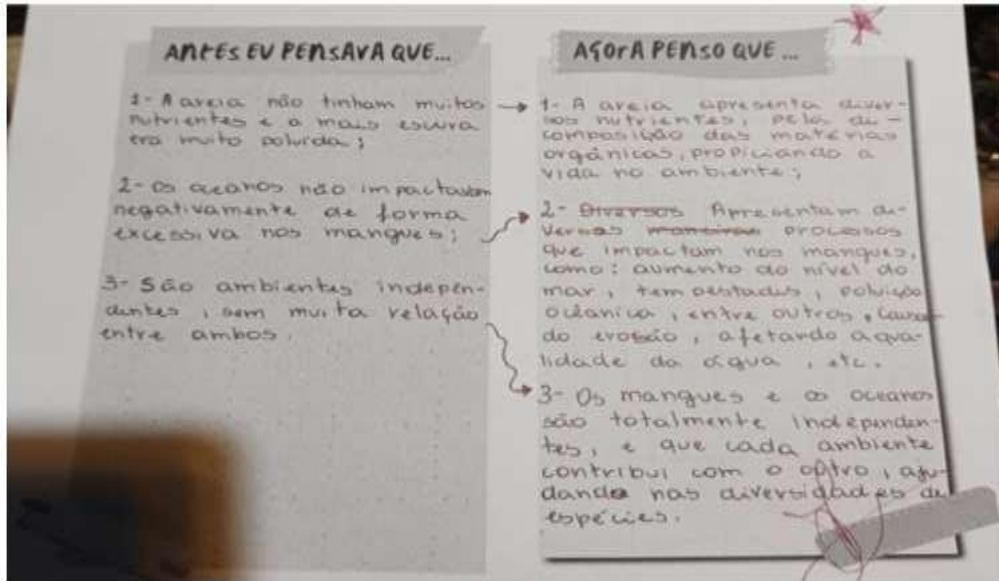 ANTES EU PENSAVA QUE...
1- A areia não tinham muitos
nutrientes e a mais escura
era muito poluída;
2- os oceanos não impactavam
negativamente de forma
excessiva nos mangues;
3- São ambientes indepen-
dentes, sem muita relação
entre ambos.
AGORA PENSO QUE...
1- A areia apresenta diver-
sos nutrientes, pela de-
composição das matérias
orgânicas, propiciando a
vida no ambiente;
2- Diversos Apresentam di-
versos maneiras processos
que impactam nos mangues,
como: aumento do nível do
mar, tempestades, poluição
oceânica, entre outros, causan-
do erosão, afetando a qua-
lidade da água, etc.
3- Os mangues e os oceanos
são totalmente independen-
tes, e que cada ambiente
contribui com o outro, aju-
dando nas diversidades de
espécies.